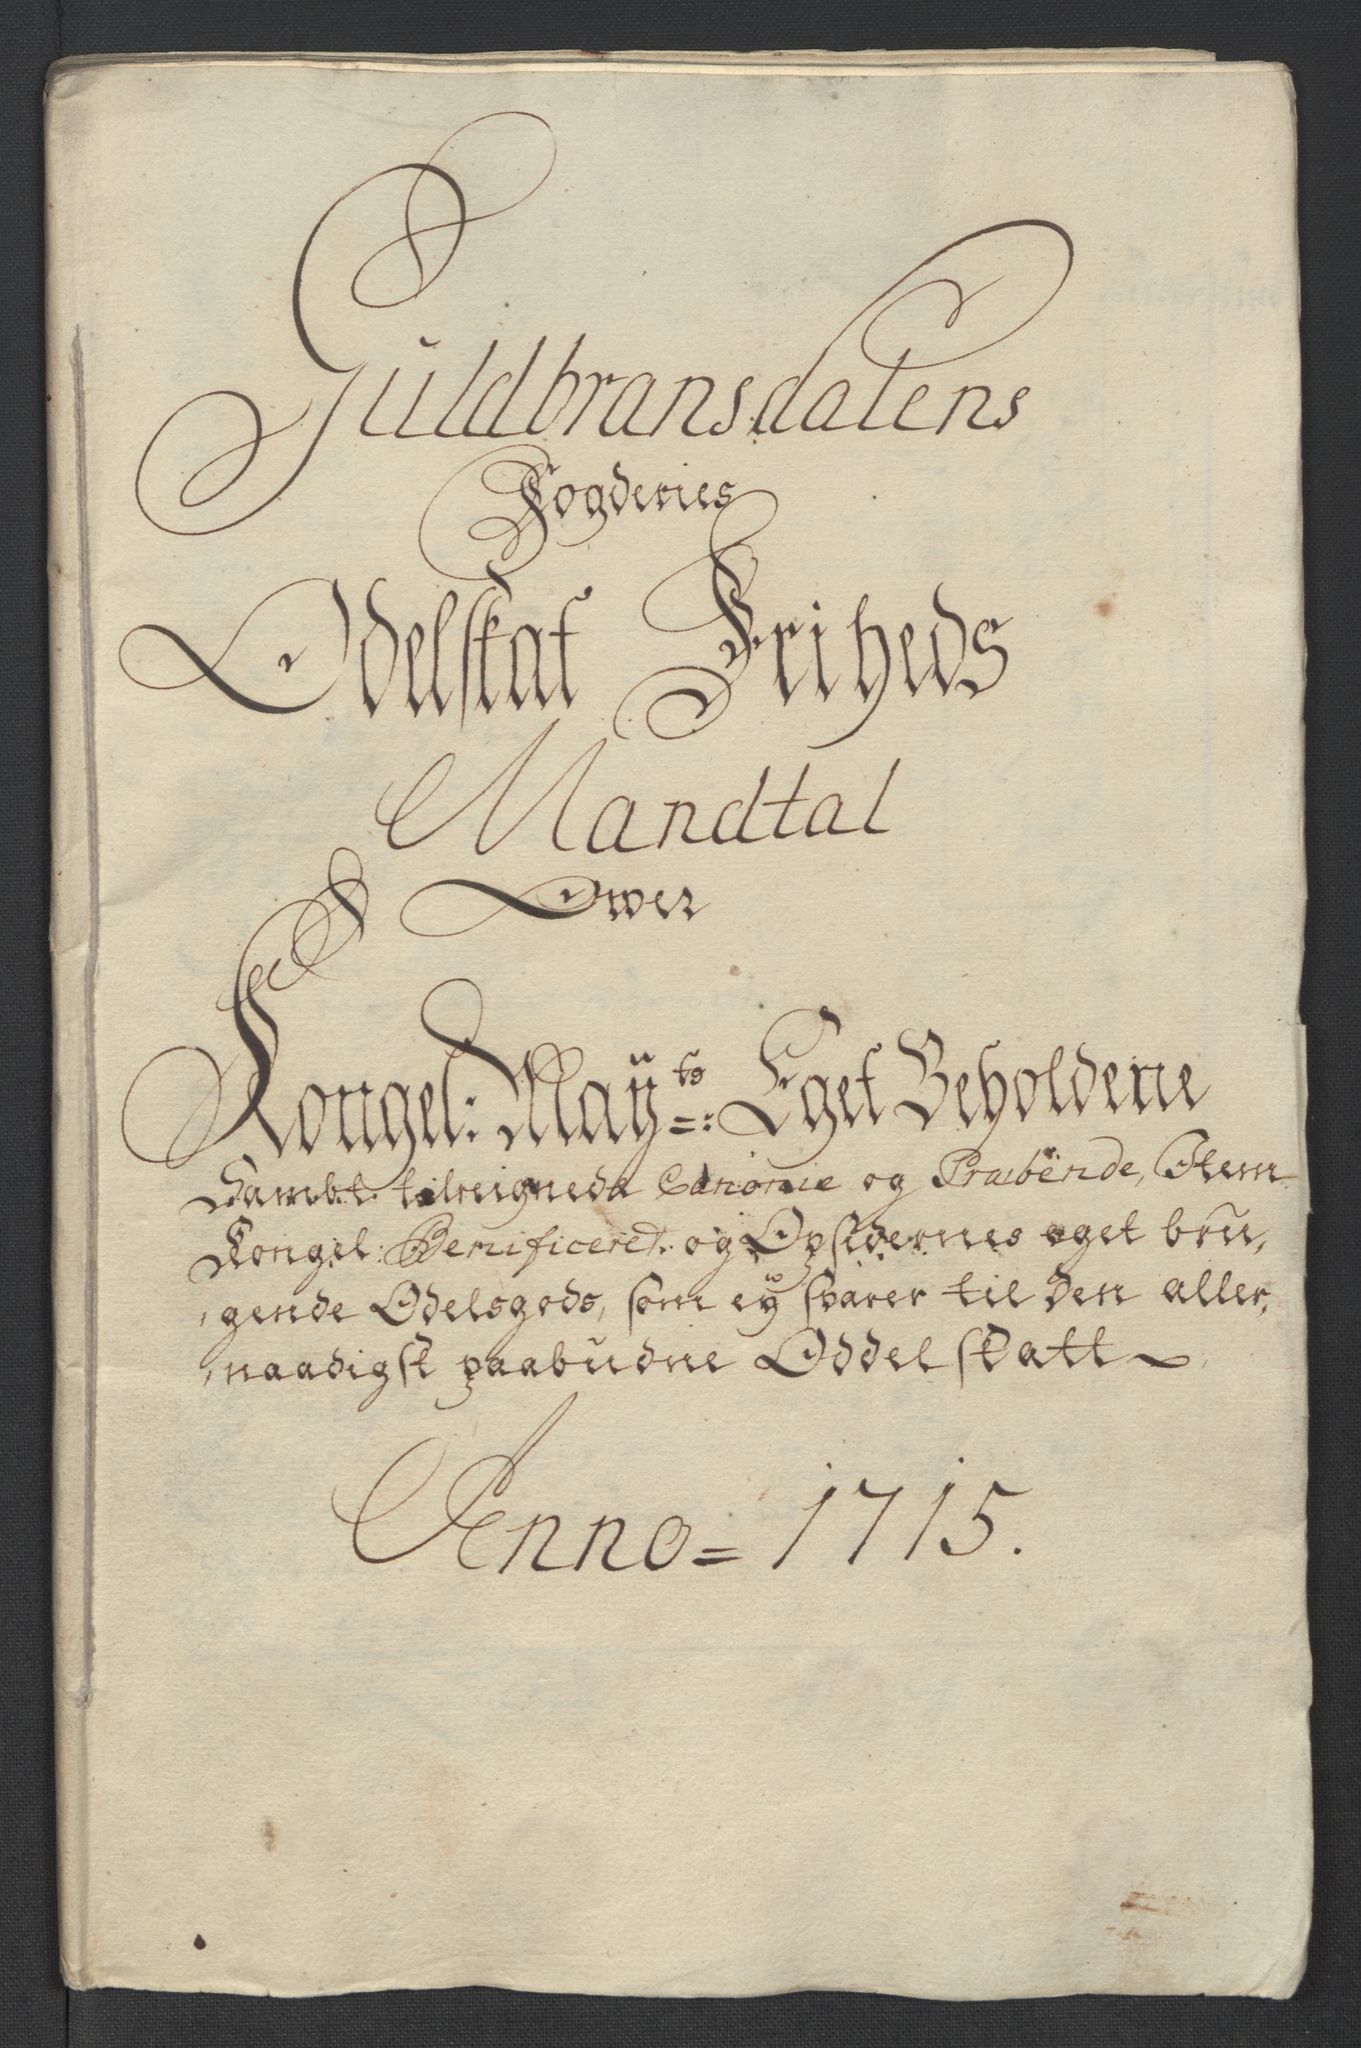 Guldbransdalens
Fogderies
Odelskat Friheds
Mandtal
Ower
Kongel: Mayᵗˢ=: Eget Beholdene
Sambt tilreignede Canonie og Præbende, Item
Kongel: Benificeret. og Opsidernes eget bru,
,gende Odelsgods, som ey svarer til den aller,
,naadigst paabudne Oddel skatt
Anno = 1715.